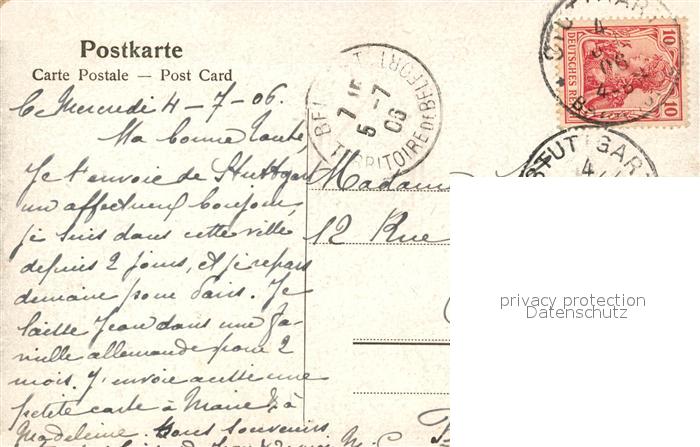 Postkarte
Carte Postale — Post Card
Mercredi 4-7-06.
Ma bonne
Je t'envoie de Stuttgart
un affectueux bonjour,
je suis dans cette ville
depuis 2 jours, et je repars
demain pour Paris. Je
laisse Jean dans une fa-
mille allemande pour 2
mois. J'envoie aussi une
petite carte à Marie & à
Madeleine. souvenirs
Madame
12 Rue
BELFORT
7 15
5-7
06
TERRITOIRE DE BELFORT
STUTTGART
4
06
10 10
DEUTSCHES REICH
STUTTGART
4
privacy protection
Datenschutz